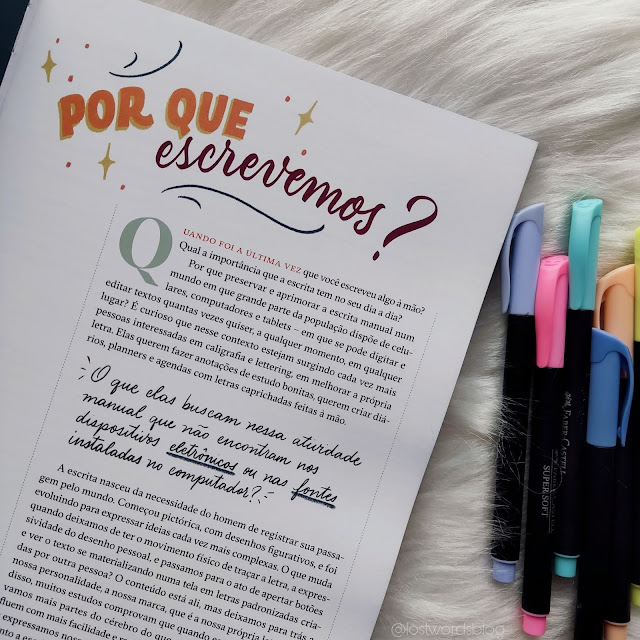 POR QUE
escrevemos?
QUANDO FOI A ÚLTIMA VEZ que você escreveu algo à mão?
Qual a importância que a escrita tem no seu dia a dia?
Por que preservar e aprimorar a escrita manual num
mundo em que grande parte da população dispõe de celu-
lares, computadores e tablets – em que se pode digitar e
editar textos quantas vezes quiser, a qualquer momento, em qualquer
lugar? É curioso que nesse contexto estejam surgindo cada vez mais
pessoas interessadas em caligrafia e lettering, em melhorar a própria
letra. Elas querem fazer anotações de estudo bonitas, querem criar diá-
rios, planners e agendas com letras caprichadas feitas à mão.
O que elas buscam nessa atividade
manual que não encontram nos
dispositivos eletrônicos ou nas fontes
instaladas no computador?
A escrita nasceu da necessidade do homem de registrar sua passa-
gem pelo mundo. Começou pictórica, com desenhos figurativos, e foi
evoluindo para expressar ideias cada vez mais complexas. O que muda
quando deixamos de ter o movimento físico de traçar a letra, a expres-
sividade do desenho pessoal, e passamos para o ato de apertar botões
e ver o texto se materializando numa tela em letras padronizadas cria-
das por outra pessoa? O conteúdo está ali, mas deixamos para trás a
nossa personalidade, a nossa marca, que é a nossa própria
disso, muitos estudos comprovam que quando
vamos mais partes do cérebro do que
fluem com mais facilidade e
expressamos
FABER-CASTELL
SUPERSOFT
@lostwordsblog